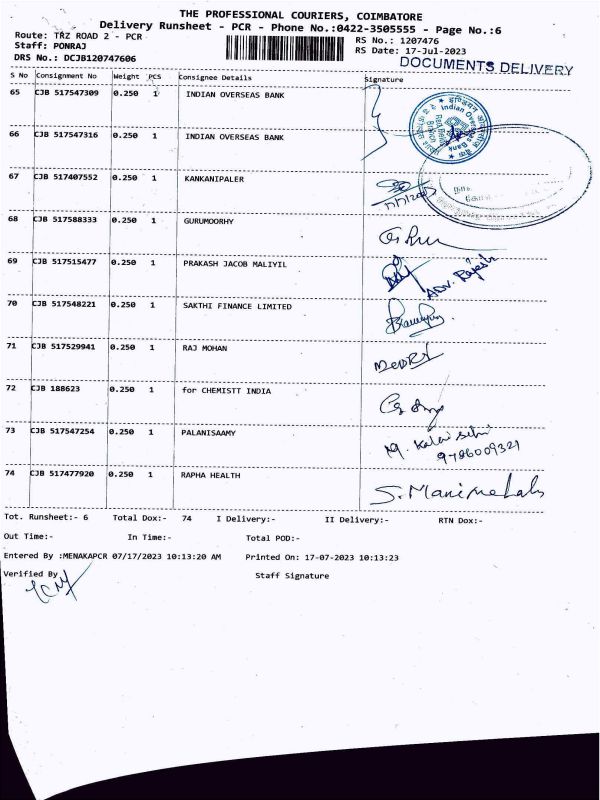 THE PROFESSIONAL COURIERS, COIMBATORE
Delivery Runsheet - PCR - Phone No.:0422-3505555 - Page No.:6
Route: TRZ ROAD 2 - PCR RS No.: 1207476
Staff: PONRAJ RS Date: 17-Jul-2023
DRS No.: DCJB120747606 DOCUMENTS DELIVERY
S No Consignment No Weight PCS Consignee Details Signature
65 CJB 517547309 0.250 1 INDIAN OVERSEAS BANK
Indian Overseas Bank
66 CJB 517547316 0.250 1 INDIAN OVERSEAS BANK
67 CJB 517407552 0.250 1 KANKANIPALER
68 CJB 517588333 0.250 1 GURUMOORHY
69 CJB 517515477 0.250 1 PRAKASH JACOB MALIYIL ADV. Rajesh
70 CJB 517548221 0.250 1 SAKTHI FINANCE LIMITED
71 CJB 517529941 0.250 1 RAJ MOHAN
72 CJB 188623 0.250 1 for CHEMISTT INDIA
73 CJB 517547254 0.250 1 PALANISAAMY
9786009321
74 CJB 517477920 0.250 1 RAPHA HEALTH S. Manimehala
Tot. Runsheet:- 6 Total Dox:- 74 I Delivery:- II Delivery:- RTN Dox:-
Out Time:- In Time:- Total POD:-
Entered By :MENAKAPCR 07/17/2023 10:13:20 AM Printed On: 17-07-2023 10:13:23
Verified By Staff Signature